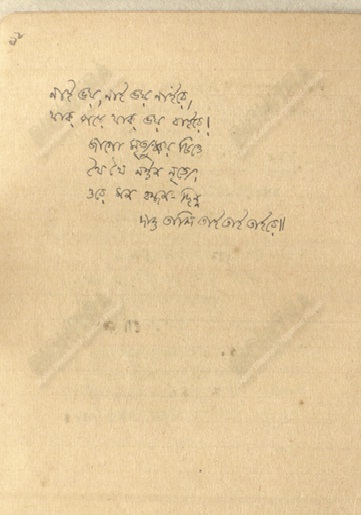 নাই ভয়, নাই ভয় নাইরে,
থাক্ পড়ে থাক্ ভয় বাইরে।
জাগো মৃত্যুঞ্জয় চিত্তে
থৈ থৈ নর্তন নৃত্যে,
ওরে মন বন্ধন-ছিন্ন
দাও তালি তাই তাই তাইরে॥